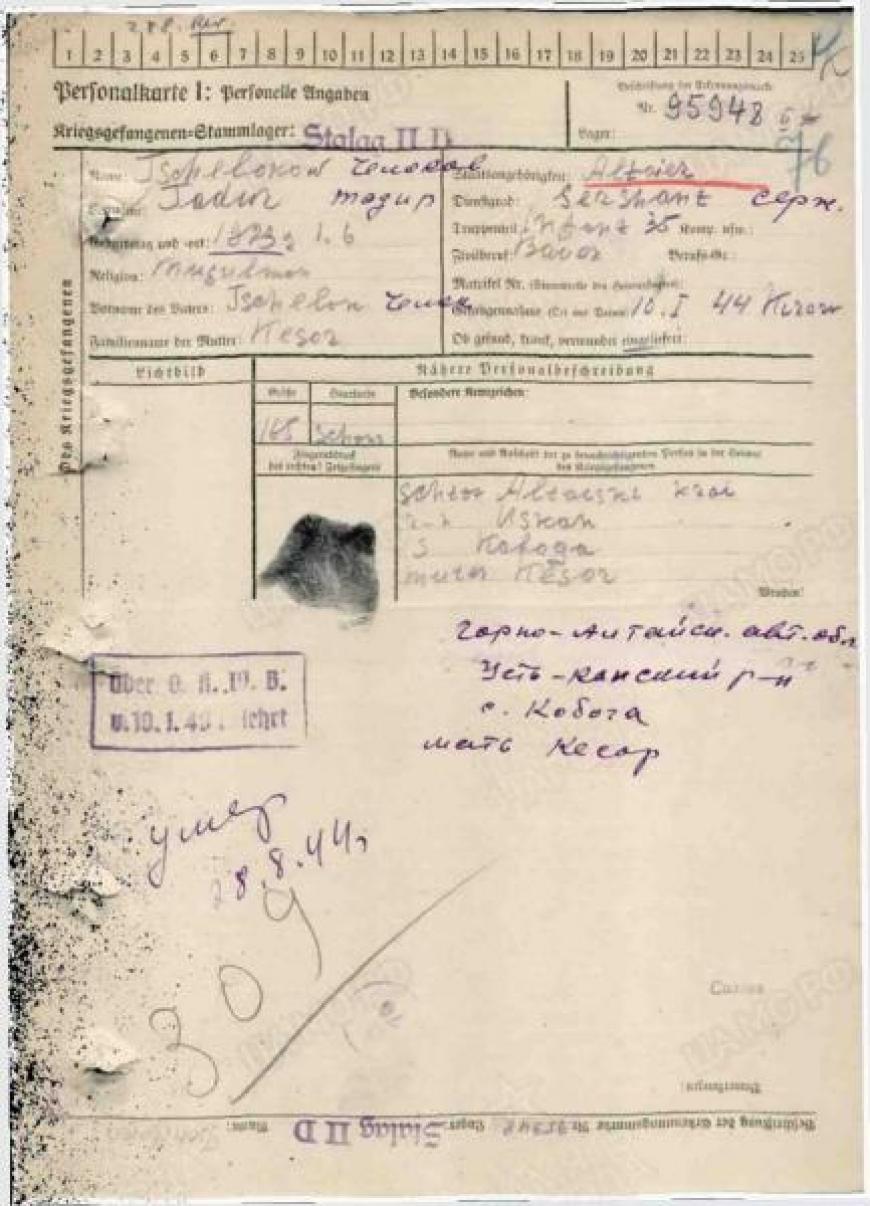 1 2 3 4 5 6 7 8 9 10 11 12 13 14 15 16 17 18 19 20 21 22 23 24 25
Personalkarte I: Personelle Angaben
Beschriftung der Erkennungsmarke
Nr. 95948
Kriegsgefangenen-Stammlager: Stalag II D
Lager:
76
Des Kriegsgefangenen
Name: Tschelokow
Staatsangehörigkeit: Altaier
Todur тадир
Dienstgrad: Sershant серж.
Geburtstag und -ort: 1.6
Truppenteil: 35 Komp. usw.:
Religion: Musulman
Zivilberuf: Berufs-Gr.:
Matrikel Nr.
Vorname des Vaters: Tschelok
Gefangennahme (Ort und Datum): 10. I 44 Kirow
Familienname der Mutter: Kesor
Ob gesund, krank, verwundet eingeliefert:
Lichtbild
Nähere Personalbeschreibung
Größe
Haarfarbe
Besondere Kennzeichen:
165
Schwarz
Fingerabdruck
des rechten! Zeigefingers
Name und Anschrift der zu benachrichtigenden Person in der Heimat
des Kriegsgefangenen
Altaiski krai
Uskan
s Koboga
muter Kesor
Wenden!
Горно-Алтайск. авт. обл
Усть-Канский р-н
с. Кобога
мать Кесар
умер
28.8.44г
309
Bemerkungen:
Beschriftung der Erkennungsmarke Nr. 95948 Lager: Stalag II D Name:
ЦАМО РФ